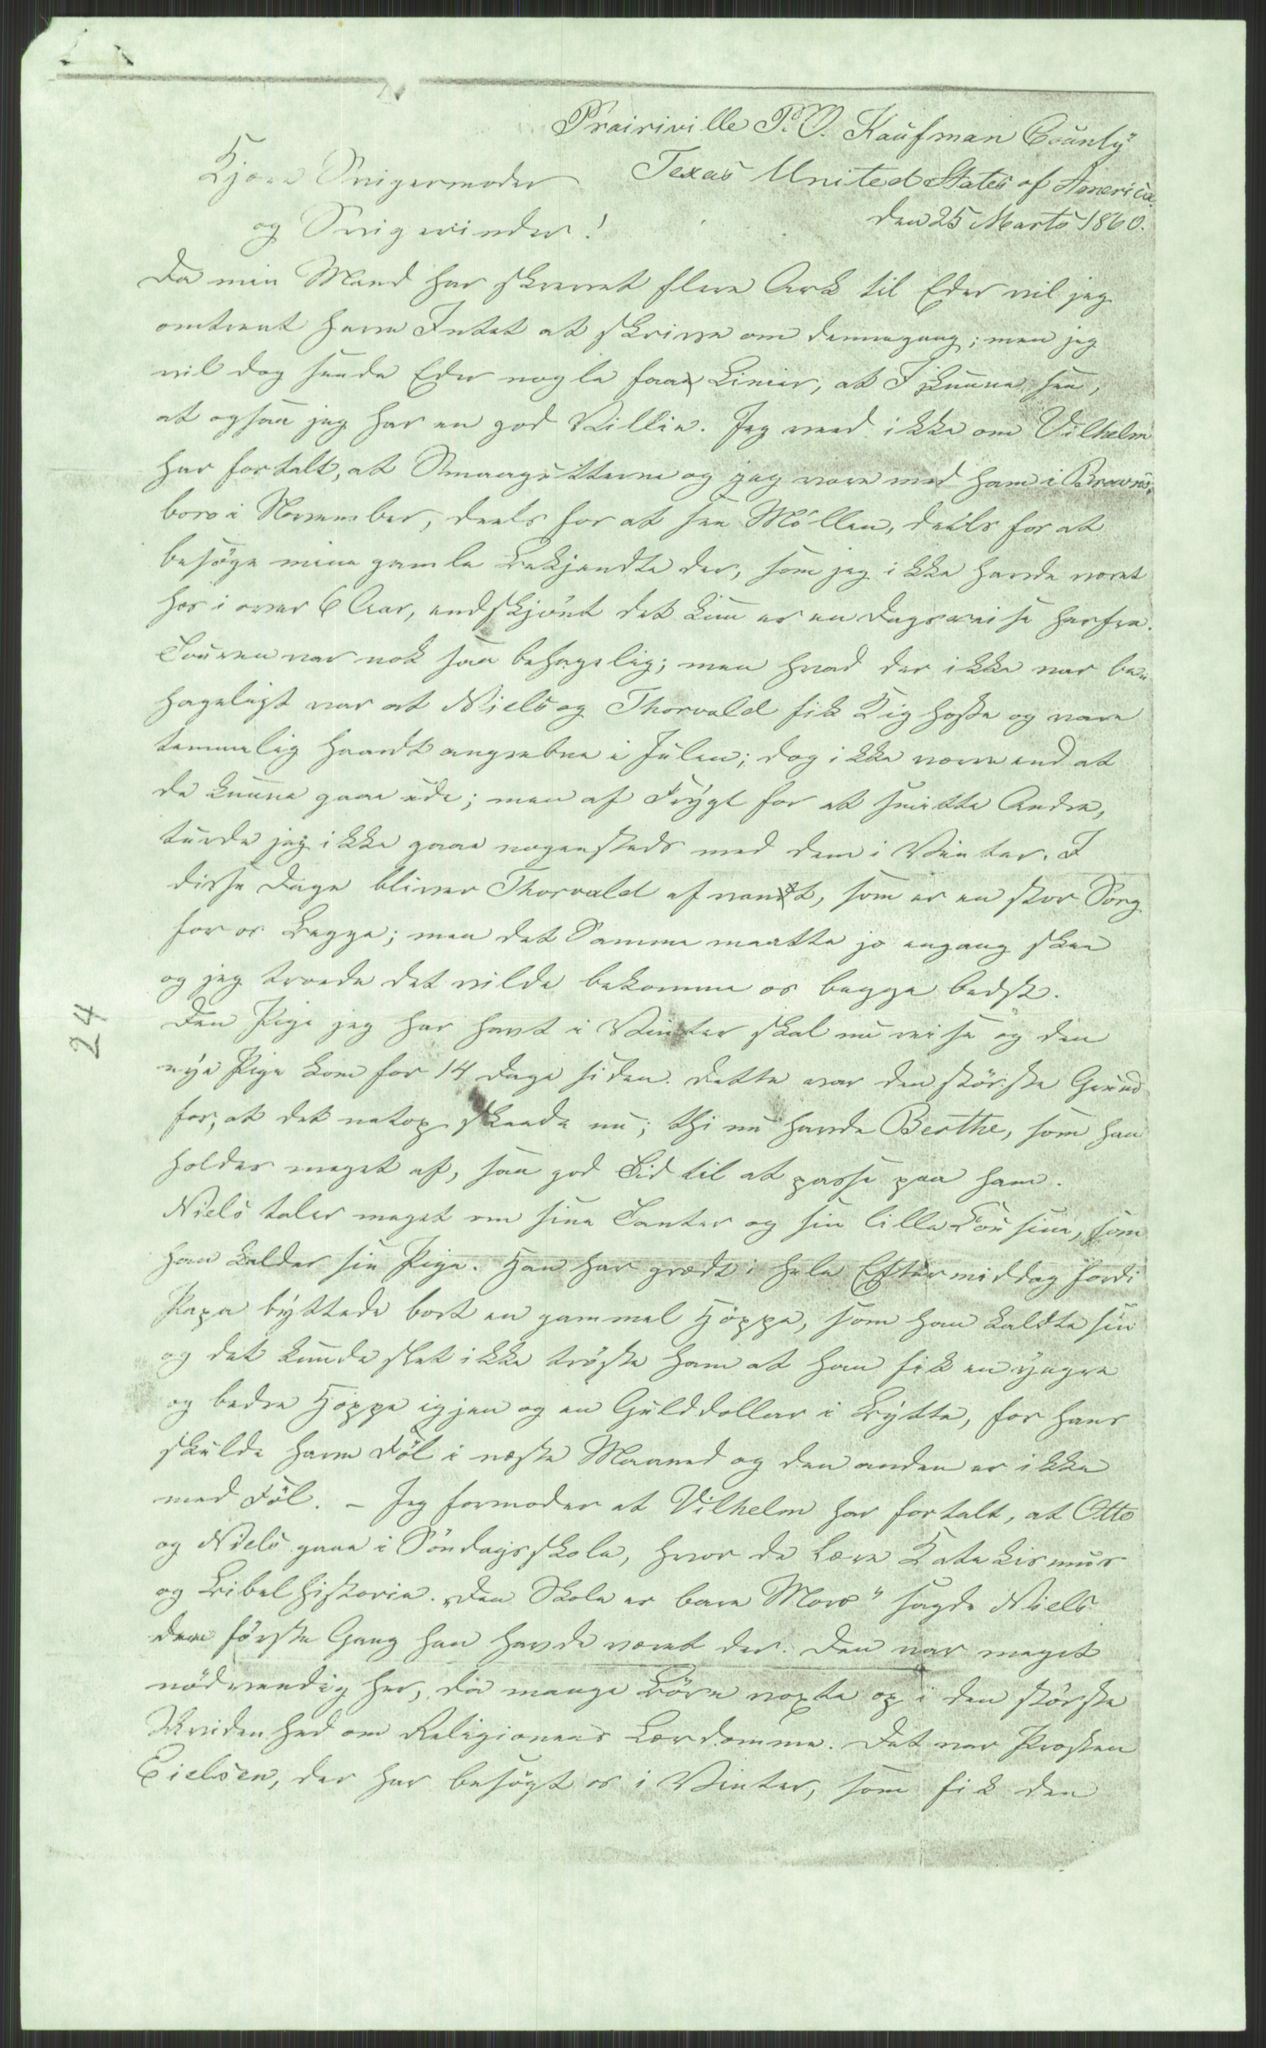 Prairieville P. O. Kaufman County
Texas United States of America.
den 25 Marts 1860.
Kjære Svigermoder
og Svigerinder!
Da min Mand har skrevet flere Ark til Eder vil jeg
omtrent have Intet at skrive om dennegang; men jeg
vil dog sende Eder nogle faae Linier, at I kunne see,
at ogsaa jeg har en god Villie. Jeg veed ikke om Vilhelm
har fortalt, at Smaagutterne og jeg vare med ham i Browns-
boro i November, deels for at see Möllen, deels for at
besöge mine gamle Bekjendte der, som jeg ikke havde været
hos i over 6 Aar, endskjönt det kun er en Dagsreise herfra.
Touren var nok saa behagelig; men hvad der ikke var be-
hageligt var at Niels og Thorvald fik Kighoste og vare
temmelig haardt angrebne i Julen; dog ikke værre end at
de kunne gaae ude; men af Frygt for at smitte Andre,
turde jeg ikke gaae nogensteds med dem i Vinter. I
disse Dage bliver Thorvald afvant, som er en stor Sorg
for os Begge; men det Samme maatte jo engang skee
og jeg troede det vilde bekomme os begge bedst.
Den Pige jeg har havt i Vinter skal nu reise og den
nye Pige kom for 14 Dage siden. Dette var den störste Grund
for, at det netop skeede nu; thi nu havde Berthe, som han
holder meget af, saa god Tid til at passe paa ham.
Niels taler meget om sine Tanter og sin lille Cousine, som
han kalder sin Pige. Han har grædt i hele Eftermiddag fordi
Papa byttede bort en gammel Hoppe, som han kaldte sin
og det kunde slet ikke tröste ham at han fik en yngre
og bedre Hoppe igjen og en Gulddollar i Bytte, for hans
skulde have Föl i næste Maaned og den anden er ikke
med Föl. – Jeg formoder at Vilhelm har fortalt, at Otto
og Niels gaae i Söndagsskole, hvor de lære Katekismus
og Bibelhistorie. „Den Skole er bare Moro" sagde Niels
den förste Gang han havde været der. Den var meget
nödvendig her, da mange Börn voxte op i den störste
Uvidenhed om Religionens Lærdomme. Det var Presten
Eielsen, der har besögt os i Vinter, som fik den
24